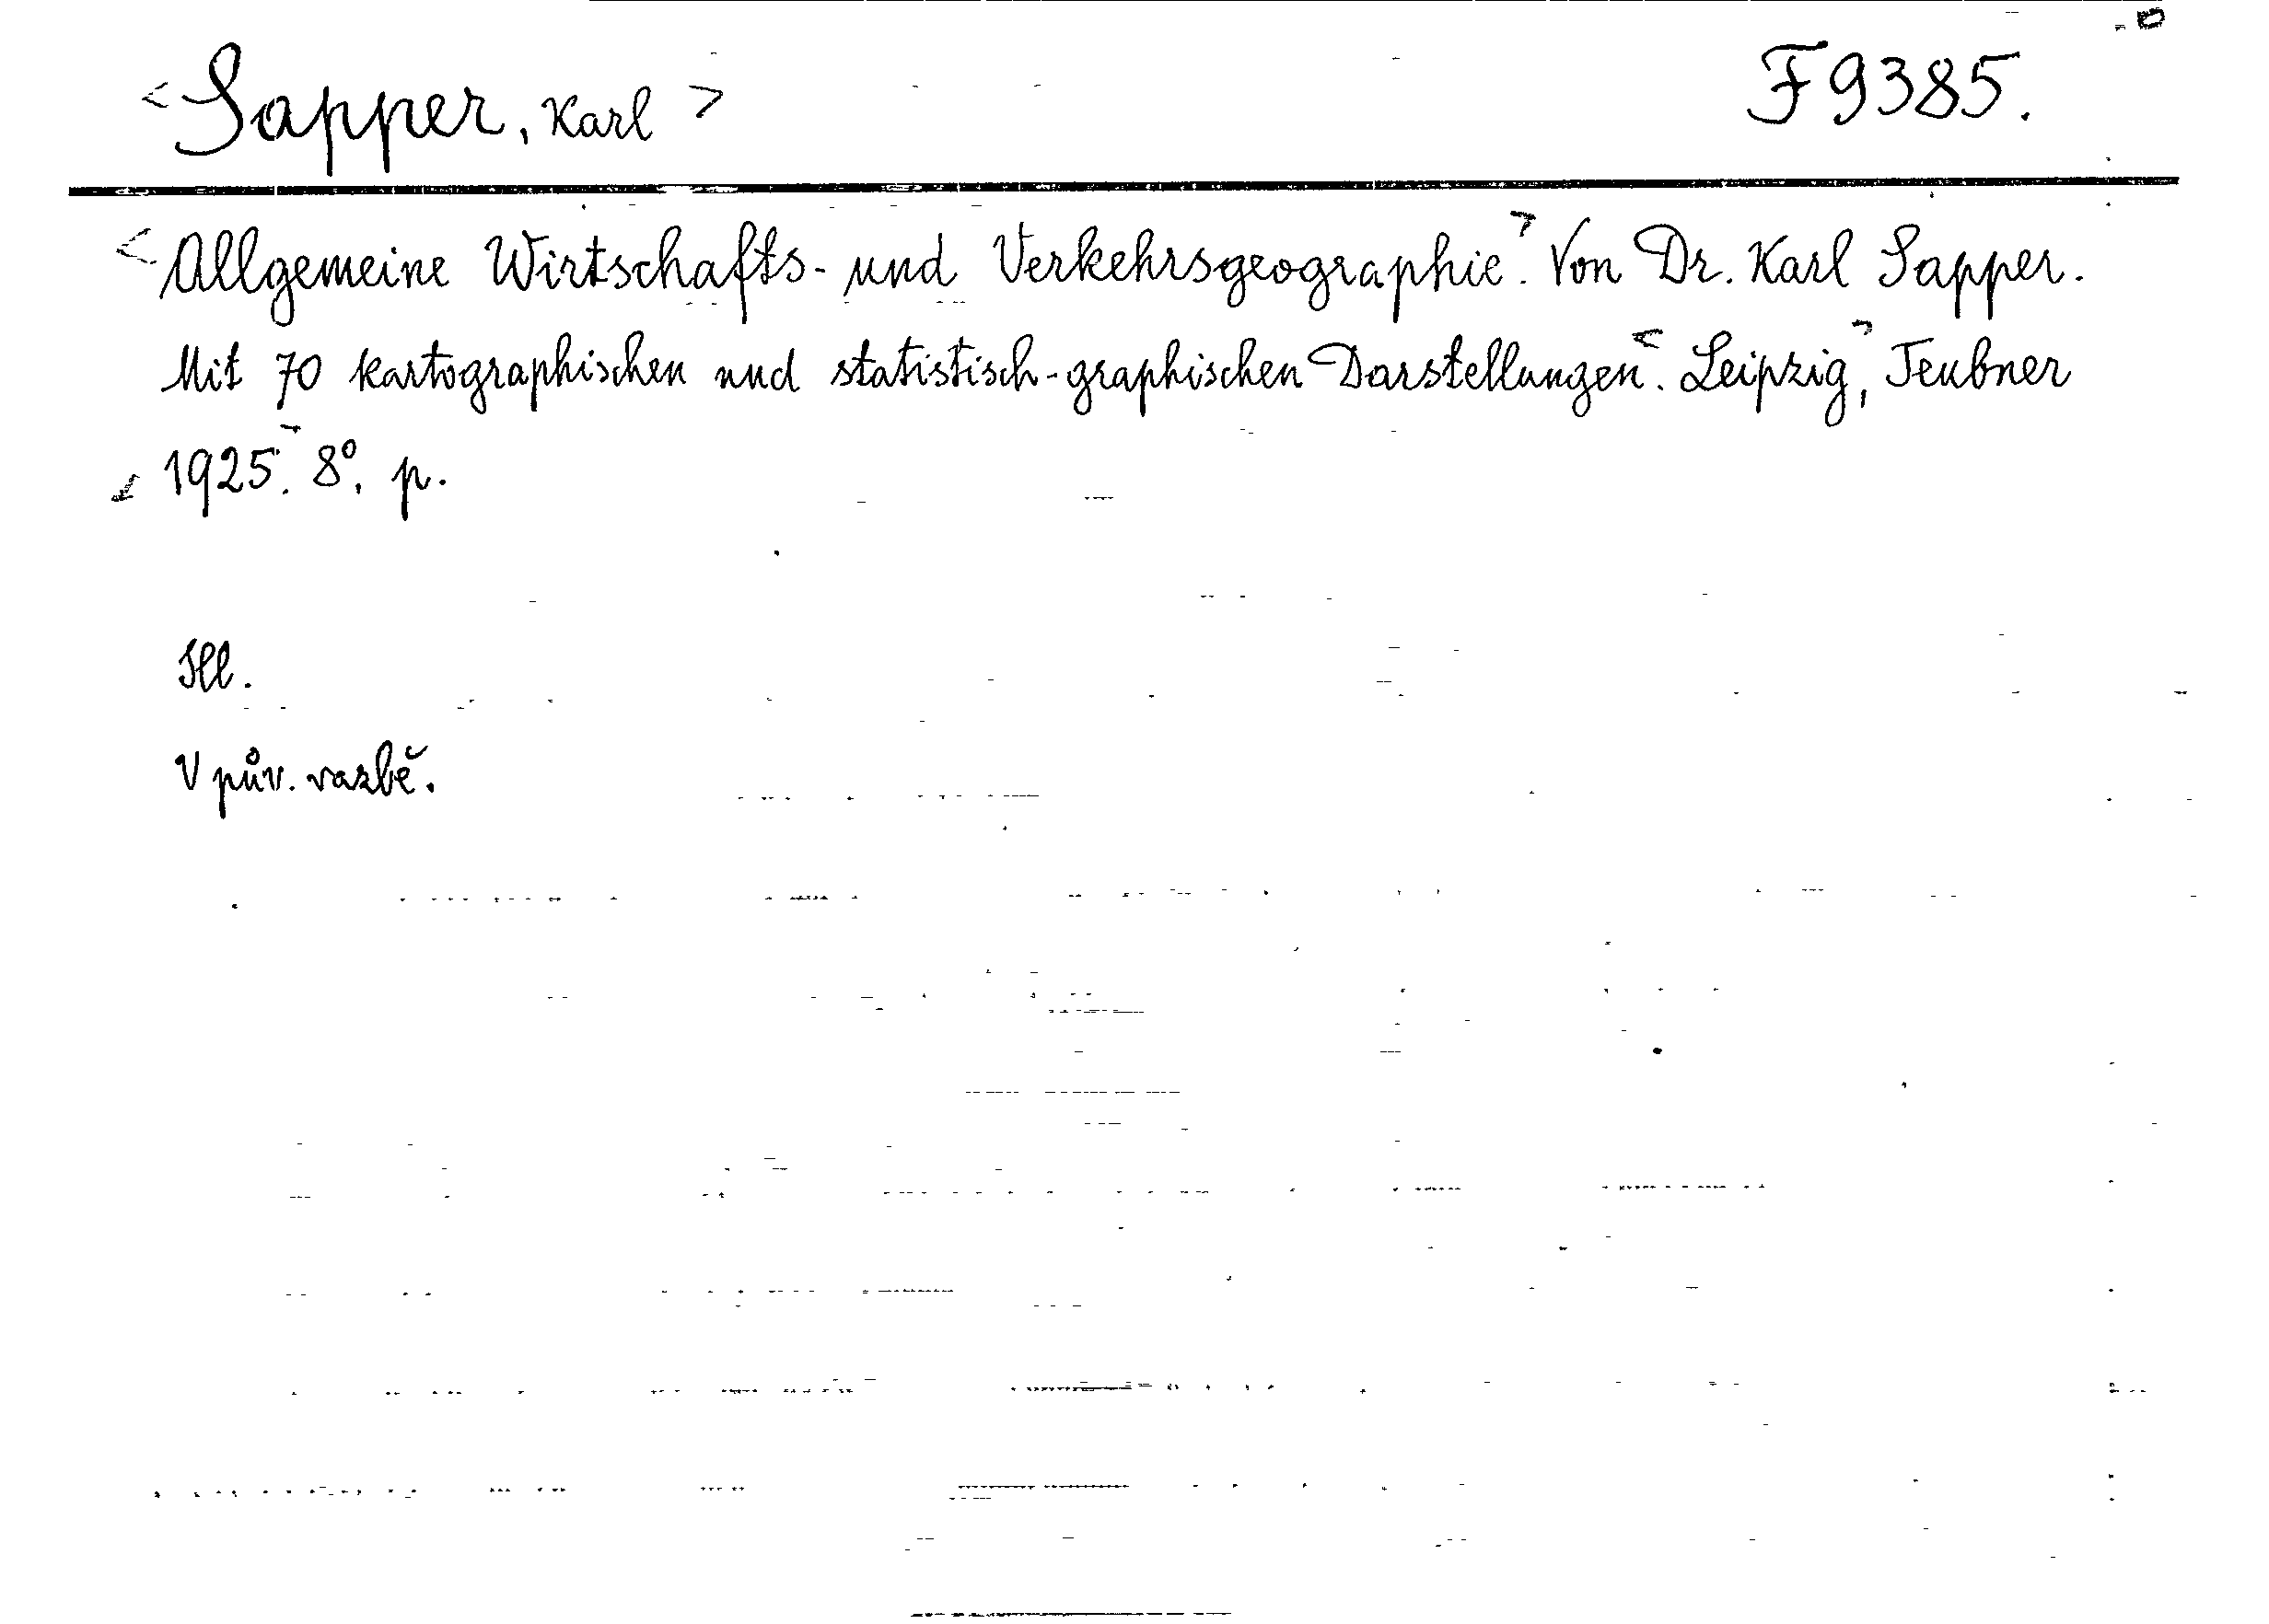 <Sapper, Karl> F 9385.
<Allgemeine Wirtschafts- und Verkehrsgeographie>. Von Dr. Karl Sapper.
Mit 70 kartographischen und statistisch-graphischen Darstellungen<. Leipzig>, Teubner
<1925>. 8°. p.
Ill.
V pův. vazbě.